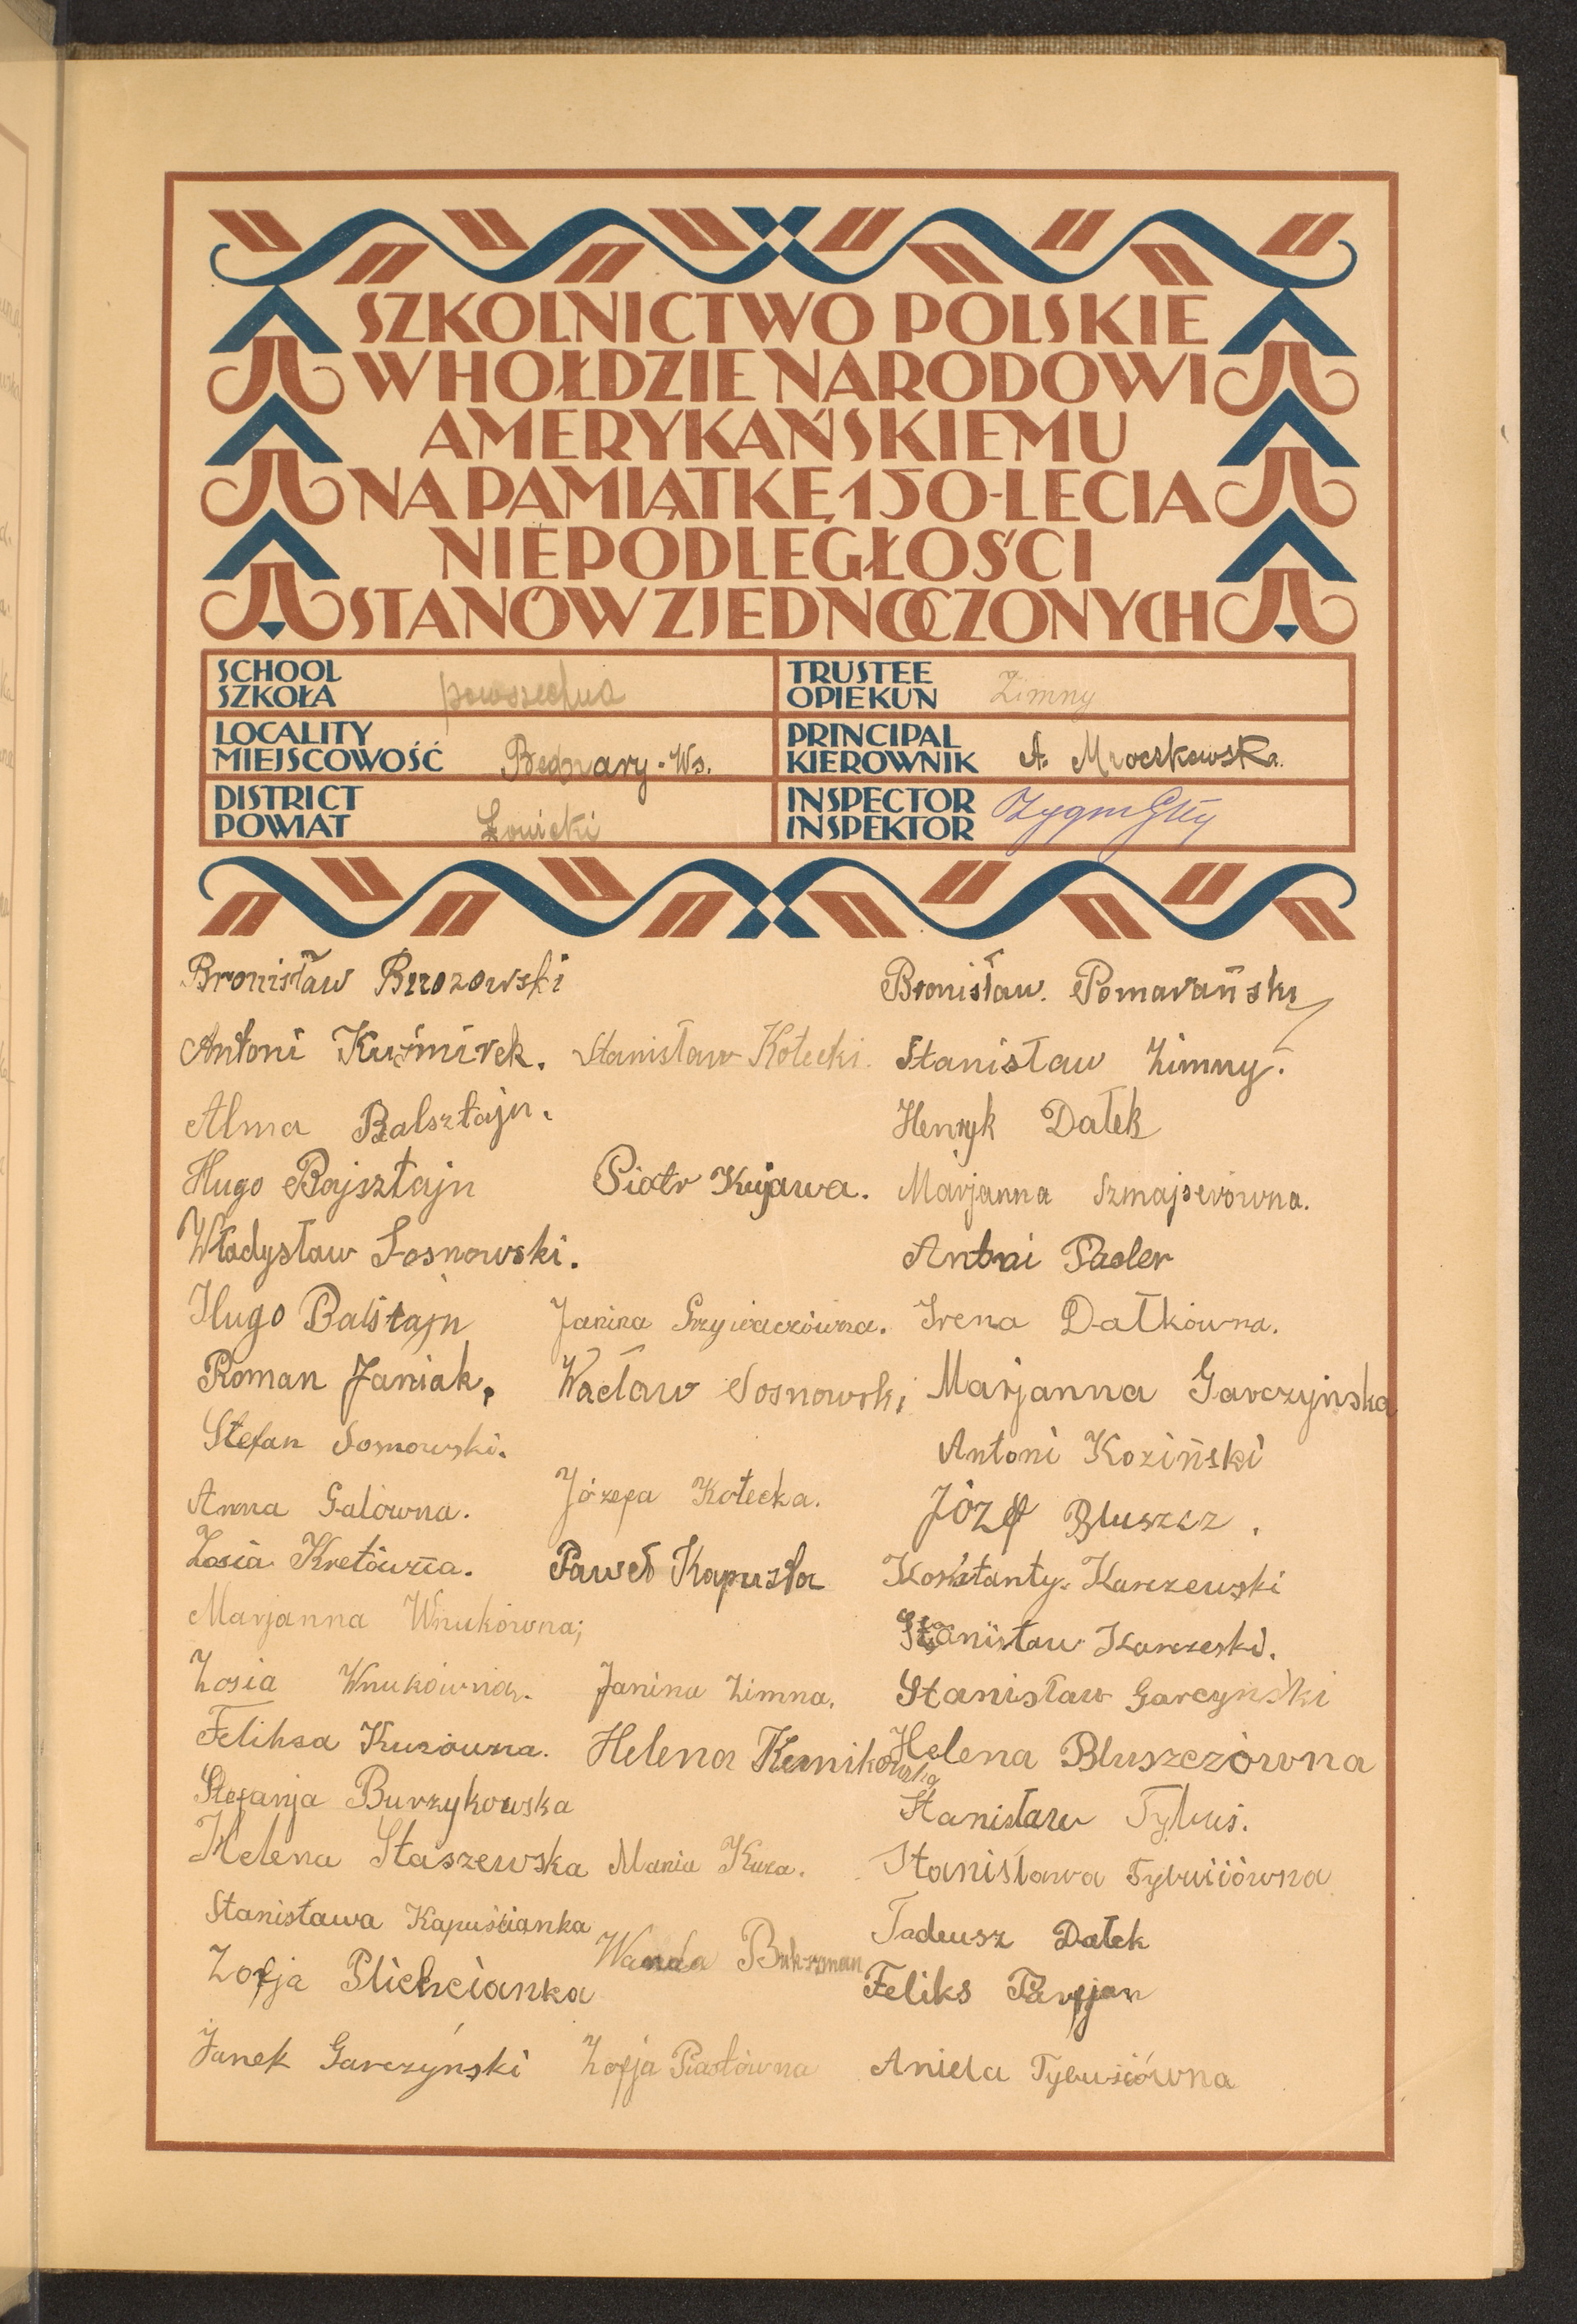 SZKOLNICTWO POLSKIE
W HOŁDZIE NARODOWI
AMERYKAŃSKIEMU
NA PAMIĄTKĘ 150-LECIA
NIEPODLEGŁOŚCI
STANÓW ZJEDNOCZONYCH
SCHOOL
SZKOŁA powszechna
TRUSTEE
OPIEKUN Zimny
LOCALITY
MIEJSCOWOŚĆ Bednary-Ws.
PRINCIPAL
KIEROWNIK A. Mroczkowska.
DISTRICT
POWIAT Łowicki
INSPECTOR
INSPEKTOR
Bronisław Brzozowski
Bronisław. Pomarański
Antoni Kuźmirek. Stanisław Kotecki. Stanisław Zimny.
Alma Balsztajn.
Henryk Dałek
Hugo Bajsztajn Piotr Kujawa. Marjanna Szmajserówna.
Władysław Sosnowski.
Antoni Pasler
Hugo Balsztajn Janina Grzywaczówna. Irena Dałkówna.
Roman Janiak. Wacław Sosnowski Marjanna Garczyńska
Stefan Sosnowski.
Antoni Koziński
Anna Galówna. Józefa Kotecka. Józef Bluszcz.
Zosia Kretówna. Paweł Kapusta Konstanty. Karczewski
Marjanna Wnukówna;
Stanisław Karczeski.
Zosia Wnukówna. Janina Zimna. Stanisław Garcyński
Feliksa Kuzówna. Helena Kernikowska Helena Bluszczówna
Stefanja Burzykowska
Stanisław Tybuś.
Helena Staszewska Mania Kuza. Stanisława Tybusiówna
Stanisława Kapuścianka
Tadeusz Dałek
Zofja Plichcianka Wanda Feliks Parfjan
Janek Garczyński Zofja Piastówna Aniela Tybusiówna